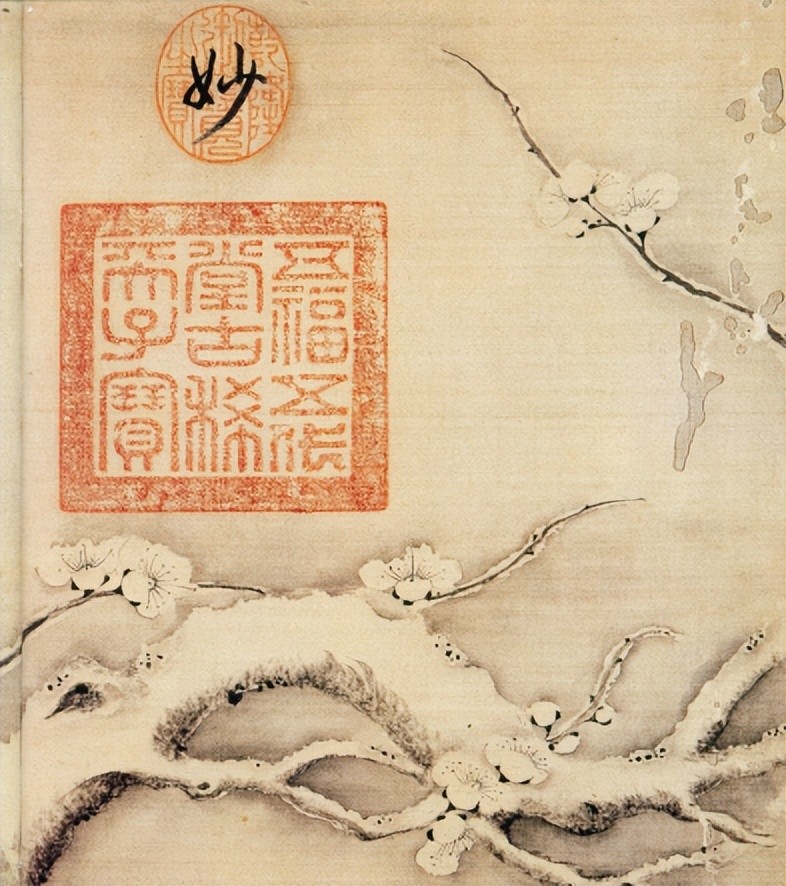 妙
乾隆
御覽
之寶
五福五代
堂古稀
天子寶